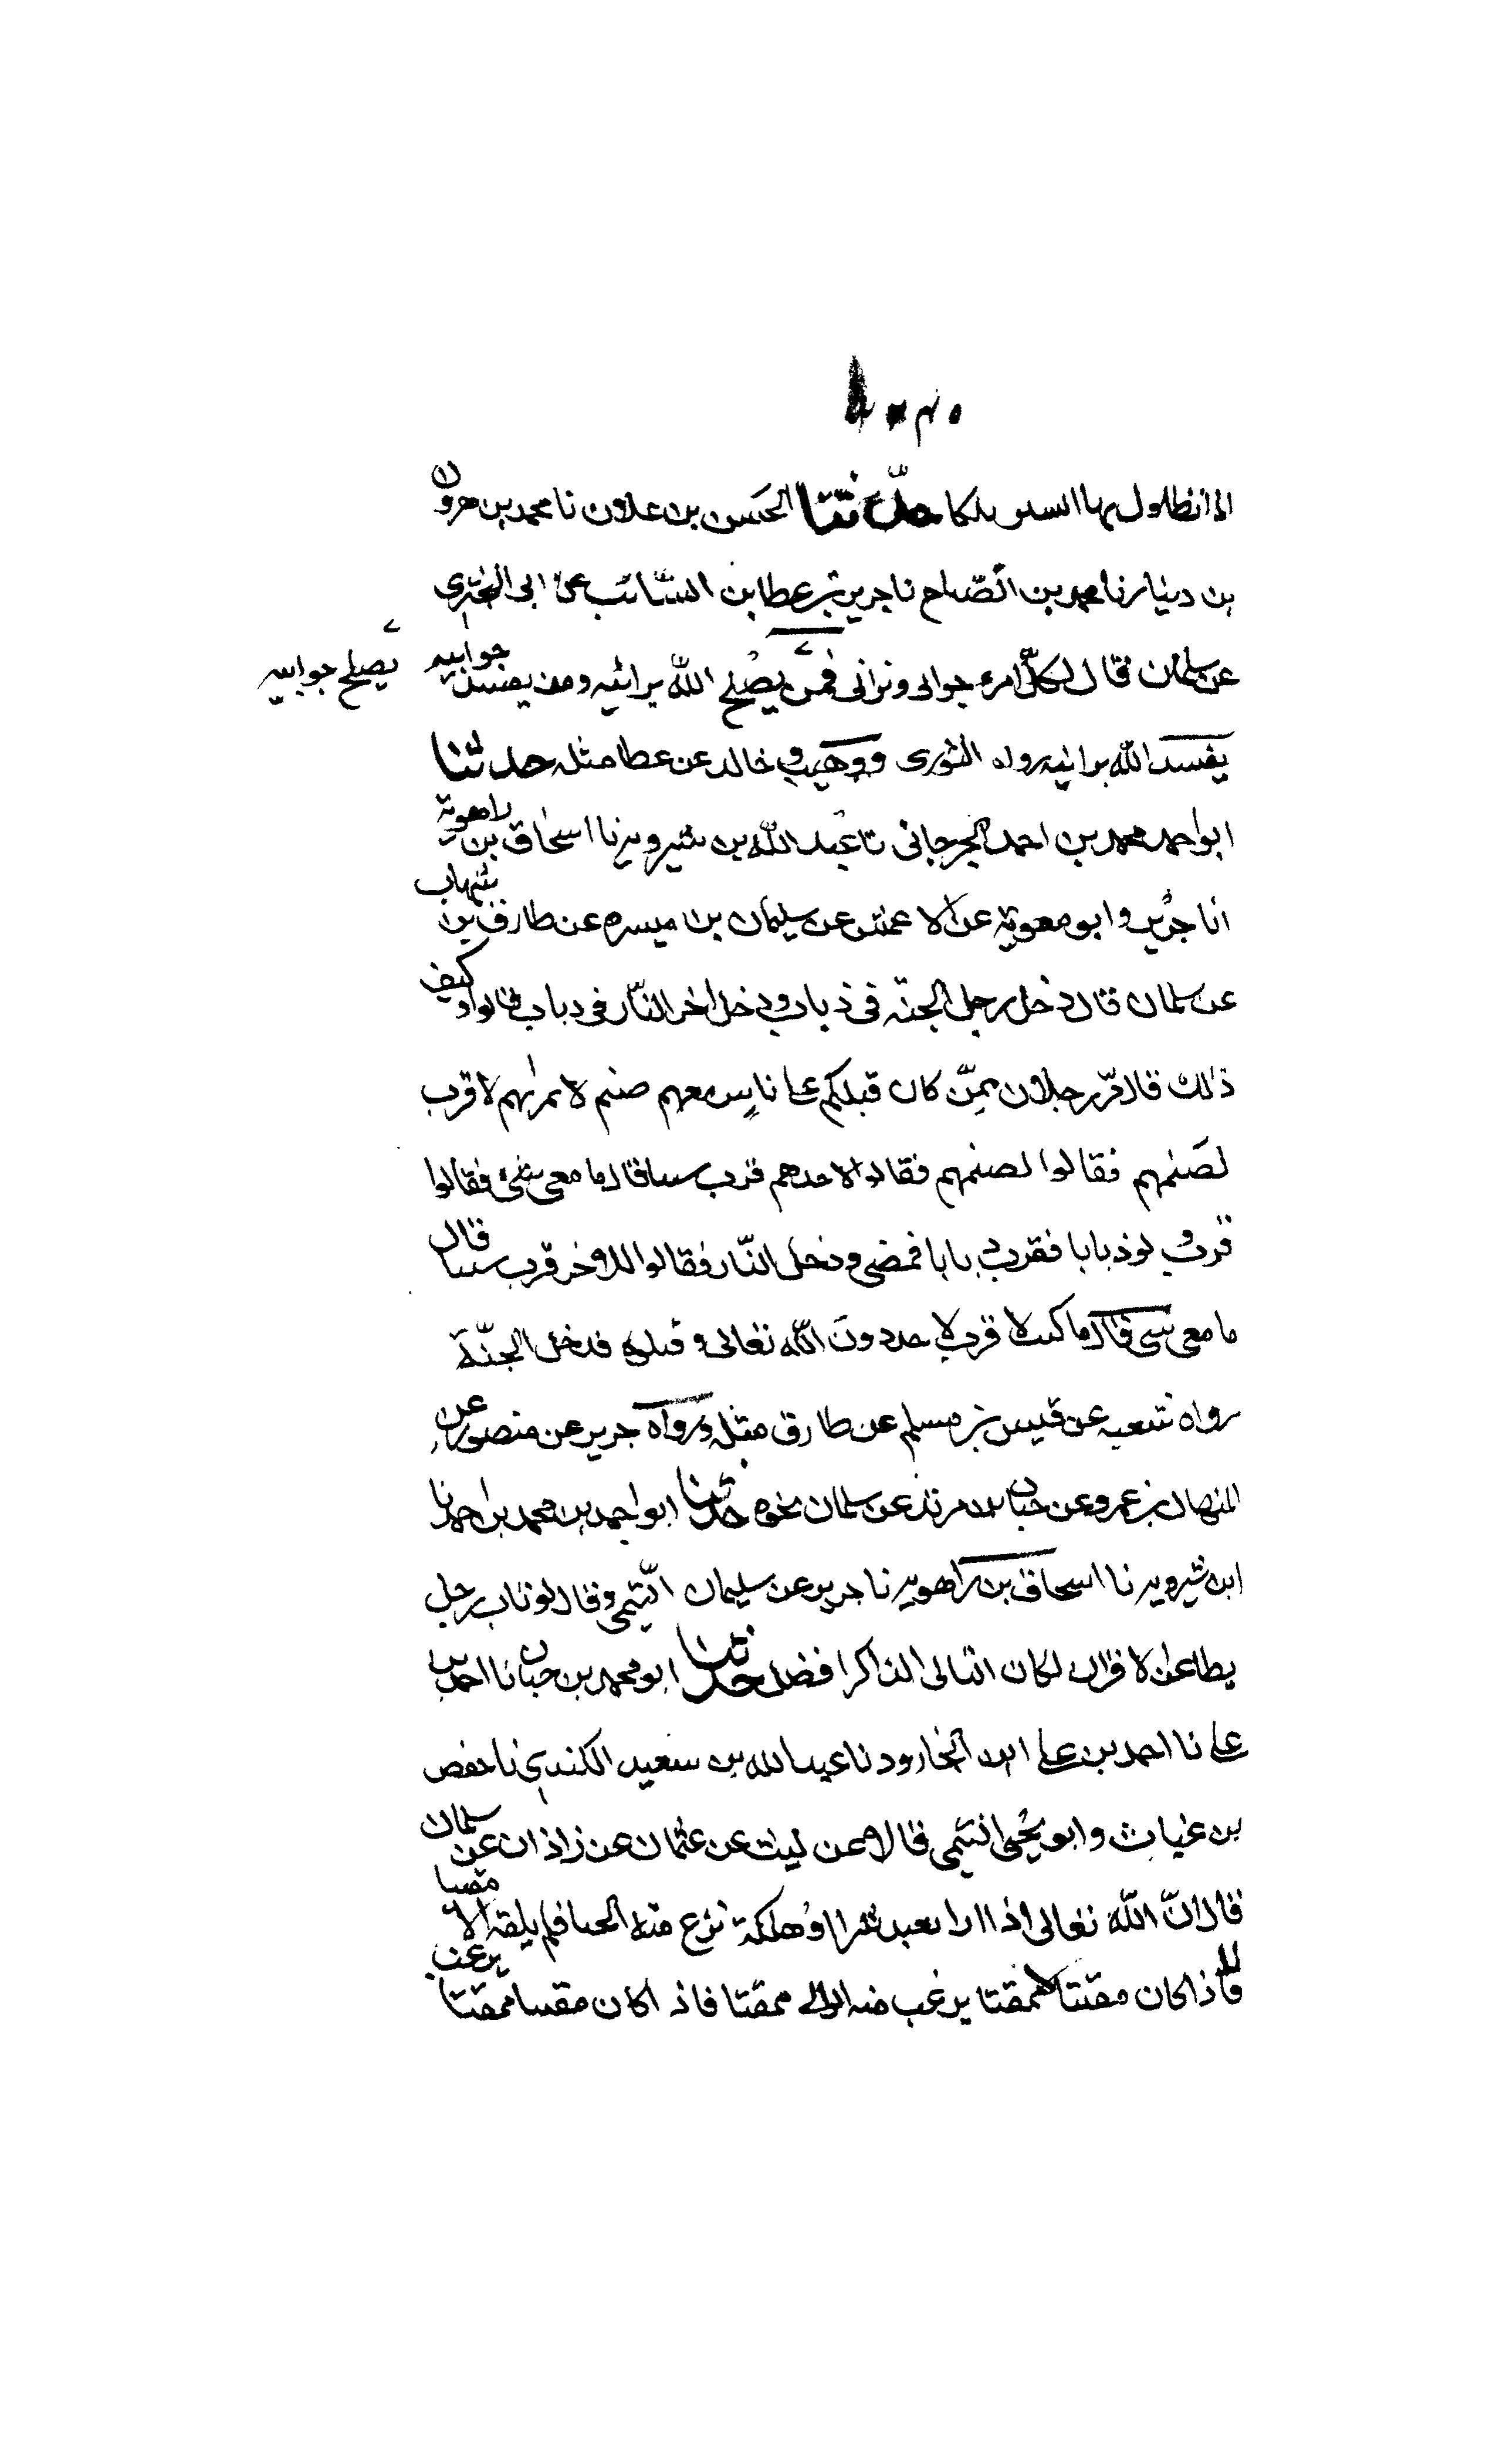 حدثنا الحسن بن علان نا محمد بن هرون
بن دينار نا محمد بن الصباح نا جرير عن عطا بن السائب عن ابى البخترى
عن سلمان قال لكل امرء جوانى وبرانى فمن يصلح الله برانيه ومن يفسد جوانيه
يصلح جوانيه
يفسد الله برانيه رواه الثورى ووهيب وخالد عن عطا مثله حدثنا
ابو احمد محمد بن احمد الجرجانى نا عبد الله بن شيرويه نا اسحاق بن راهوية
انا جرير وابو معوية عن الاعمش عن سليمان بن ميسره عن طارق بن شهاب
عن سلمان قال دخل رجل الجنه فى ذباب ودخل اخر النار فى ذباب قالوا وكيف
ذلك قال مر رجلان ممن كان قبلكم على ناس معهم صنم لا يمر بهم الا قرب
لصنمهم فقالوا لصنمهم فقالوا لاحدهم قرب شيا قال ما معى شئ فقالوا
قرب ولو ذبابا فقرب ذبابا فمضى ودخل النار فقالوا للاخر قرب شيا قال
ما معى شى قال ما كنت لاقرب لاحد دون الله تعالى فدخل الجنة
رواه شعبه عن قيس بن مسلم عن طارق مثله ورواه جرير عن منصور عن
المنهال بن عمرو عن حيان بن مرثد عن سلمان نحوه حدثنا ابو احمد بن محمد بن احمد نا
ابن شيرويه نا اسحاق بن راهويه نا جرير عن سليمان التيمى وقال لو بات رجل
يطاعن الاقران لكان التالى الذاكر افضل حدثنا ابو محمد بن حيان نا احمد بن
على نا احمد بن على ابن الجارود نا عبد الله بن سعيد الكندى نا حفص
بن غياث وابو يحيى التيمى قالا عن ليث عن عثمان عن زاذان عن سلمان
قال ان الله تعالى اذا اراد بعبد شرا او هلكة نزع منه الحيا فلم يلقه الا مقيتا
فاذا كان مقيتا ممقتا